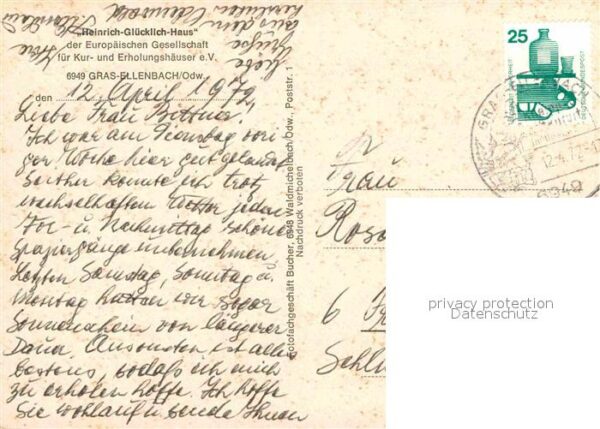 "Heinrich-Glücklich-Haus"
der Europäischen Gesellschaft
für Kur- und Erholungshäuser e.V.
6949 GRAS-ELLENBACH/Odw.
den 12. April 1972
Liebe Frau Bittner!
Ich war am Dienstag vori-
ger Woche hier gut gelandet.
Seither konnte ich trotz
wechselhaften Wetter jeden
Vor- u. Nachmittag schöne
Spaziergänge unternehmen.
Letzten Samstag, Sonntag u.
Montag hatten wir sogar
Sonnenschein von längerer
Dauer. Ansonsten ist alles
bestens, sodaß ich mich
zu erholen hoffe. Ich hoffe
Sie wohlauf u. sende Ihnen
liebe Grüße
aus dem
herrlichen Odenwald
Ihre
Fotofachgeschäft Bucher, 6948 Waldmichelbach/Odw., Poststr. 1
Nachdruck verboten
25
DEUTSCHE BUNDESPOST
GRAS-ELLENBACH
12.4.72-17
6949
Frau
Rosa
6 Fr
Schl
privacy protection
Datenschutz